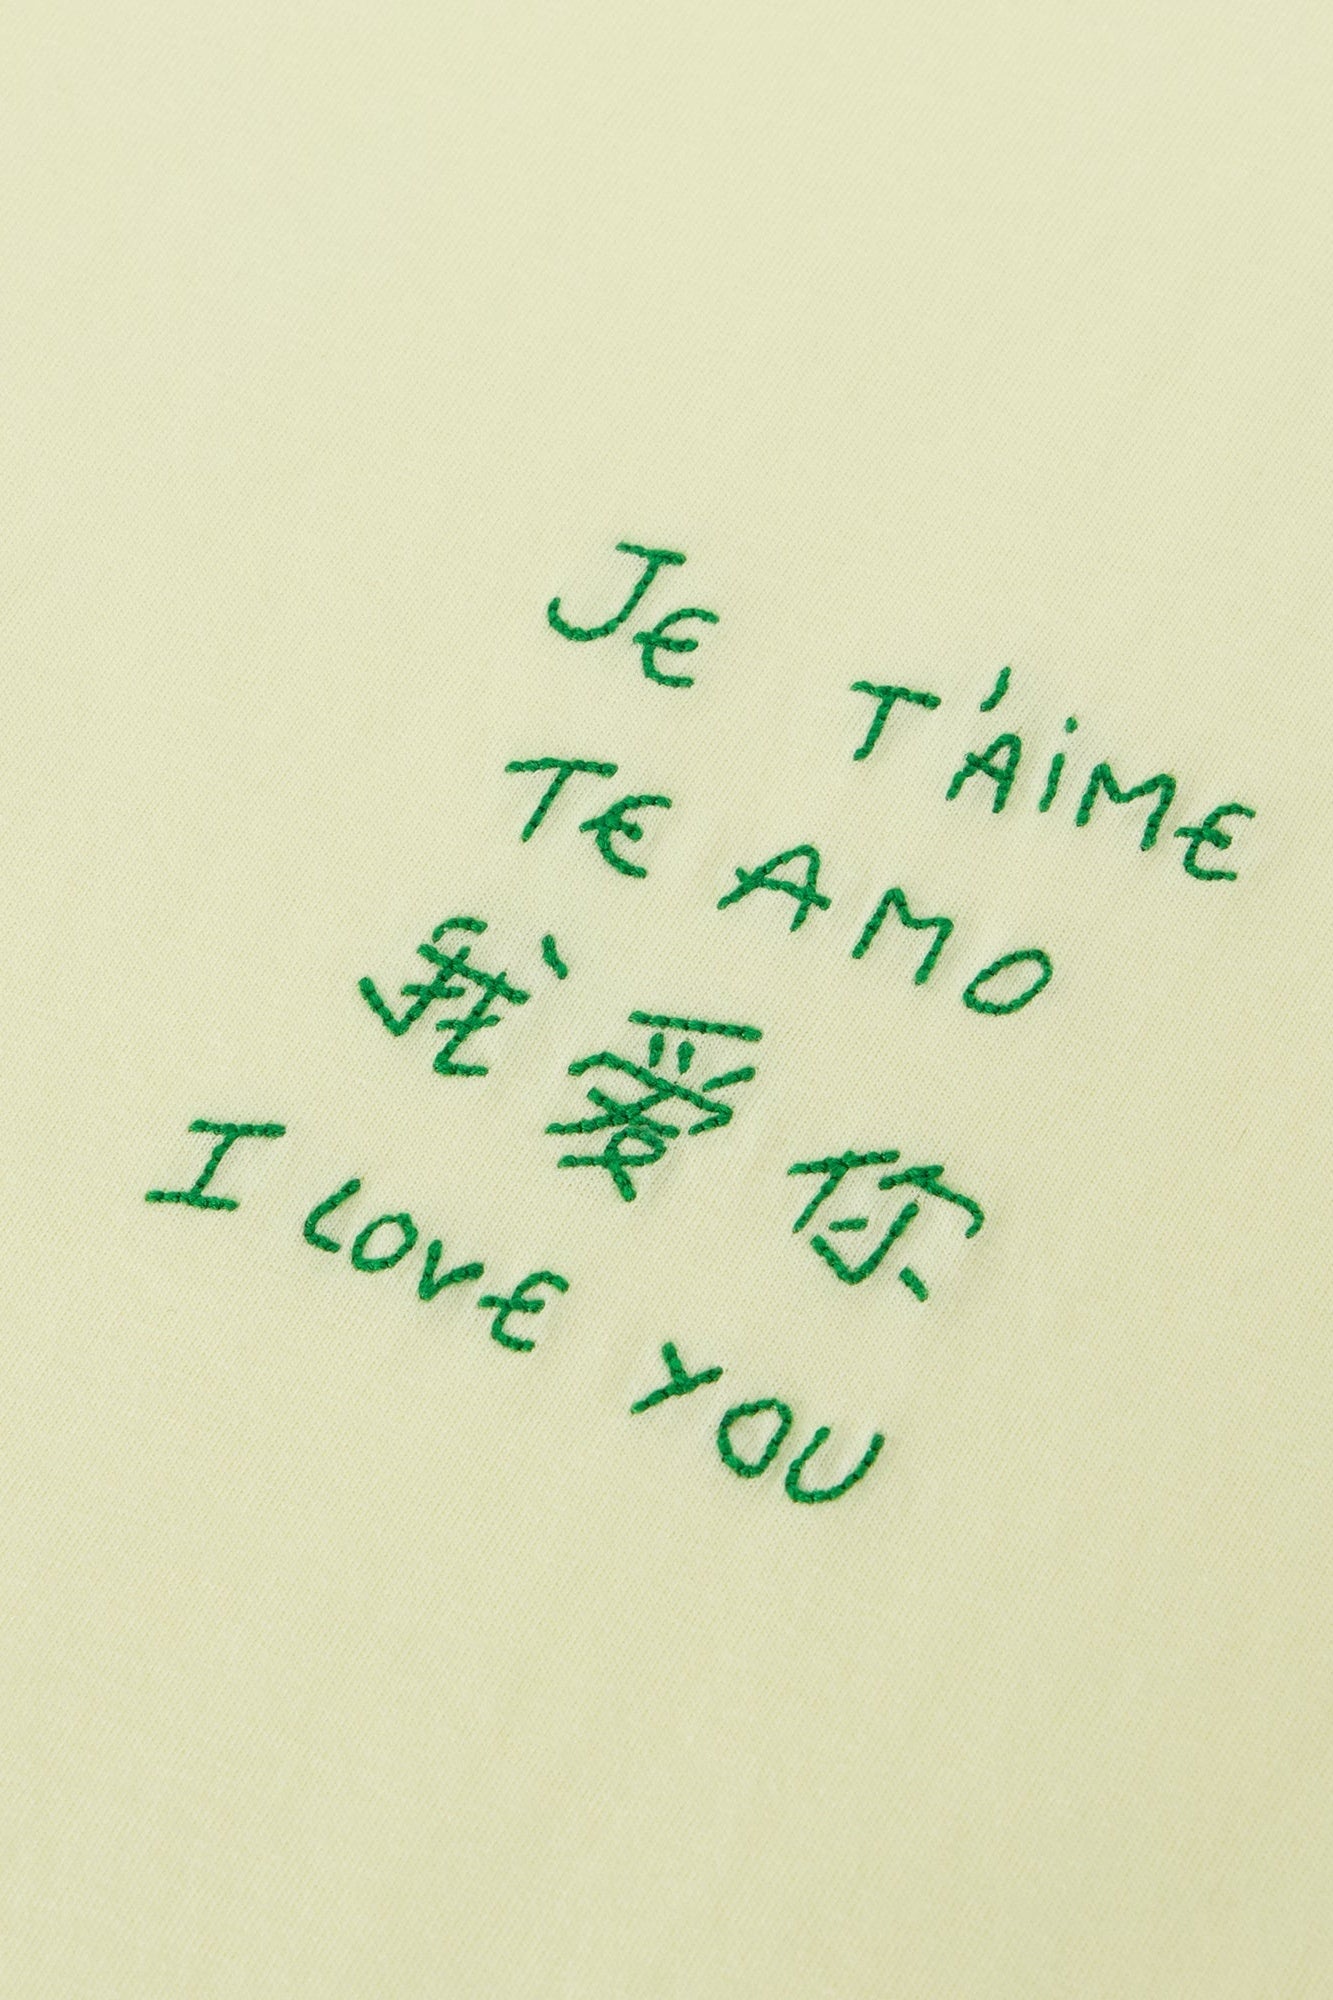 JE T'AiME
TE AMO
我爱你
I LOVE YOU